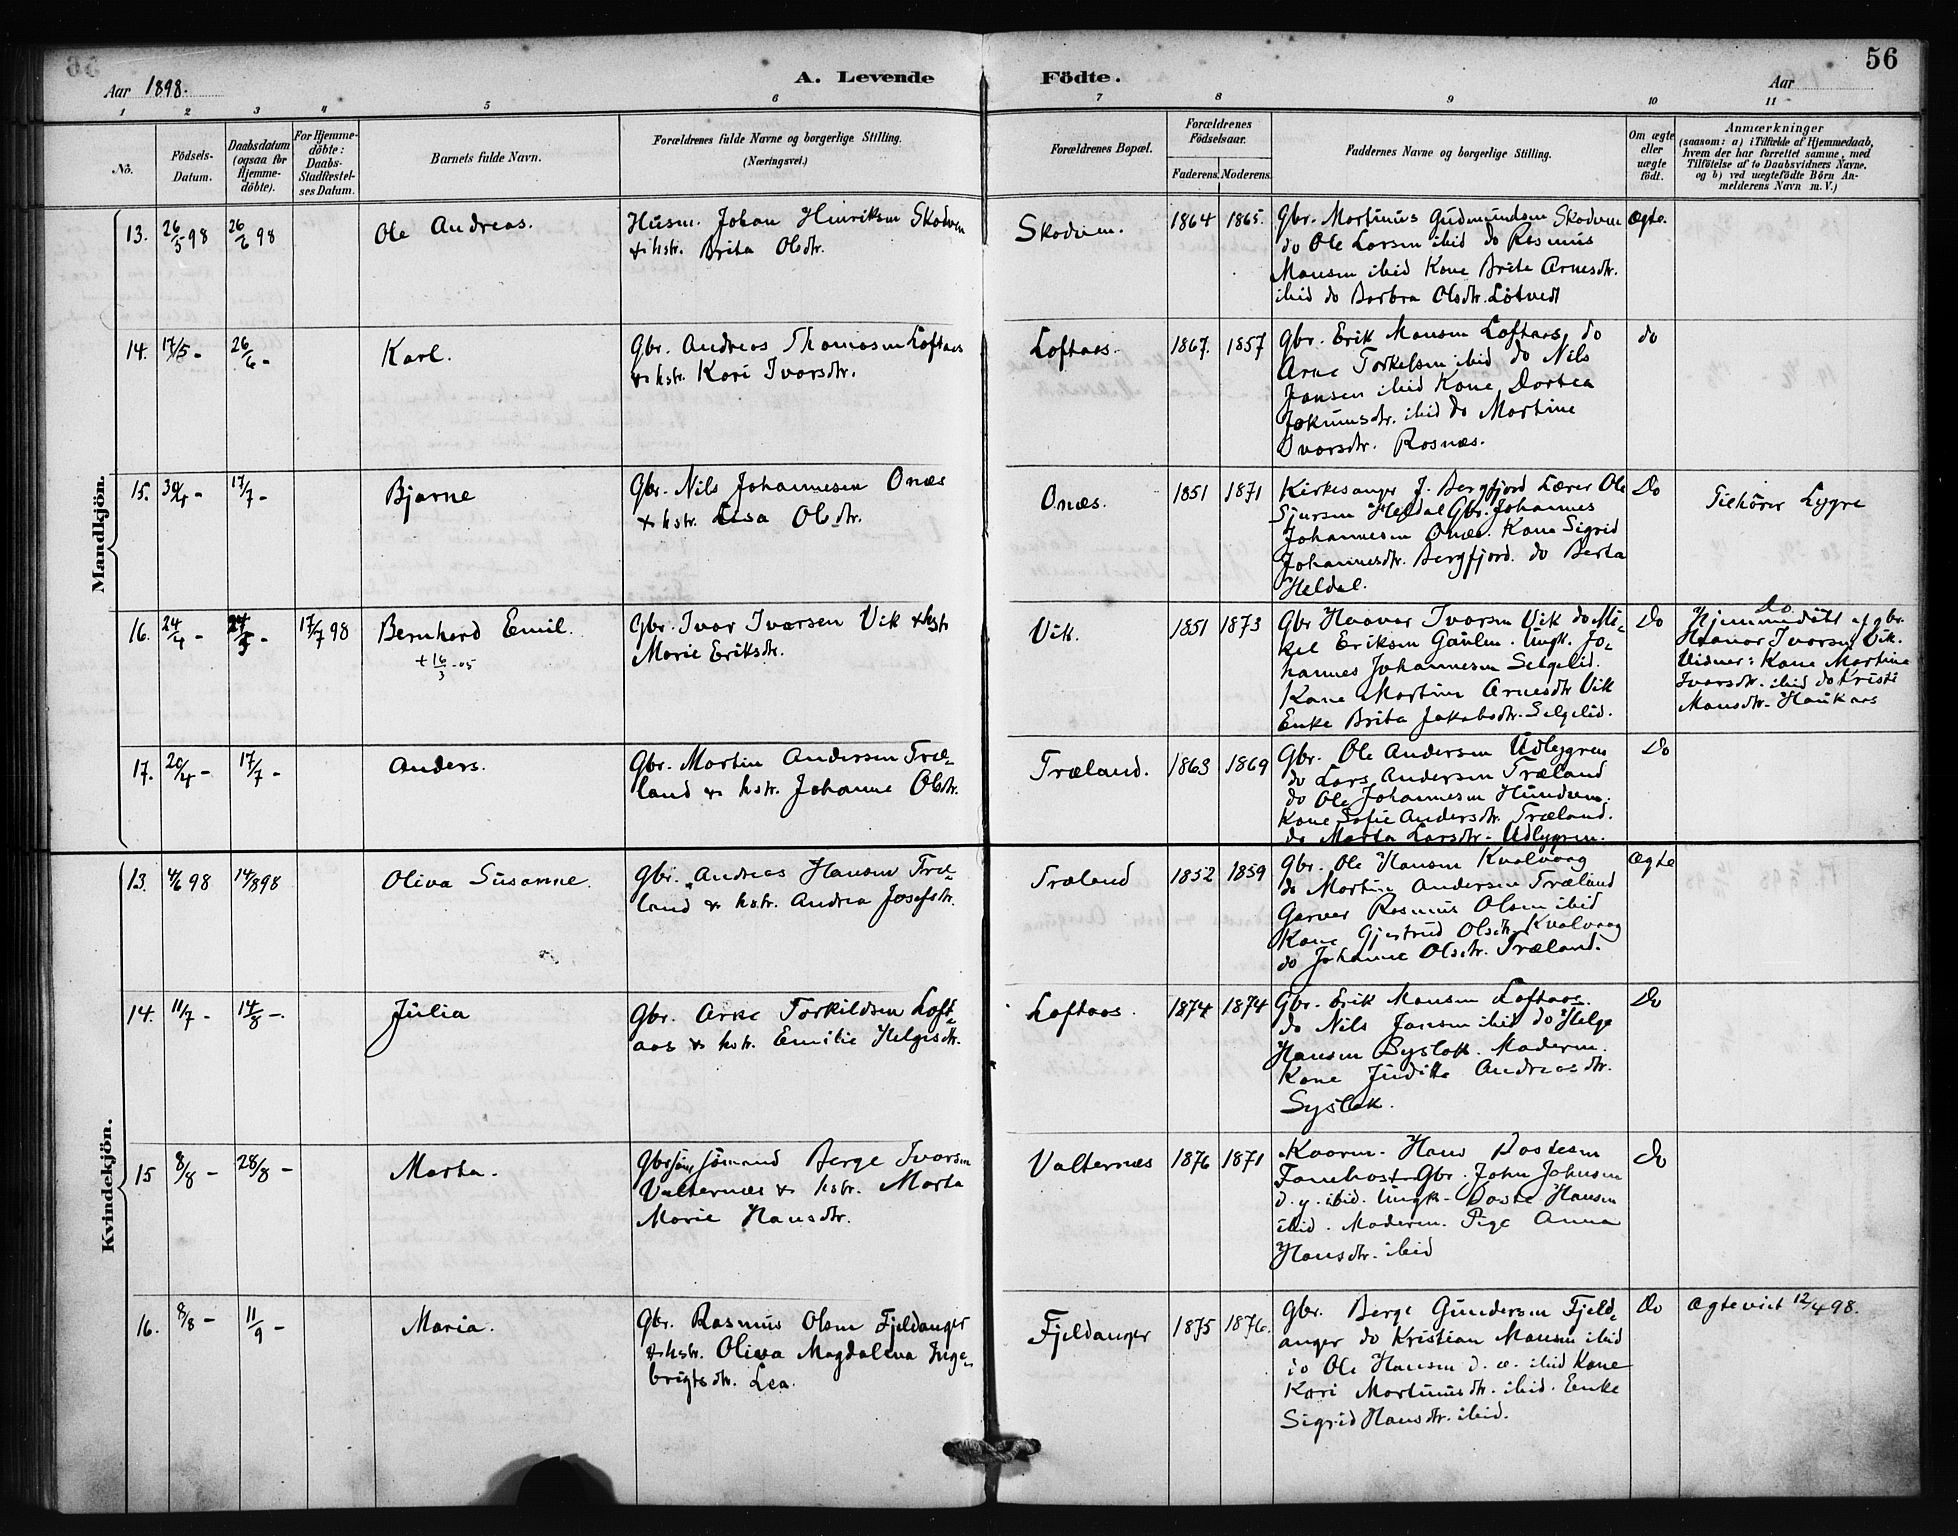 56
Aar 1898.
A. Levende Födte.
Aar
1 2 3 4 5 6 7 8 9 10 11
No.
Födsels-Datum.
Daabsdatum (ogsaa for Hjemme-döbte).
For Hjemme-döbte: Daabs-Stadfæstel-ses Datum.
Barnets fulde Navn.
Forældrenes fulde Navne og borgerlige Stilling.
(Næringsvei.)
Forældrenes Bopæl.
Forældrenes Födselsaar.
Faderens. Moderens.
Faddernes Navne og borgerlige Stilling.
Om ægte eller uægte födt.
Anmærkninger
(saasom: a) i Tilfælde af Hjemmedaab,
hvem der har forrettet samme, med
Tilföielse af to Daabsvidners Navne,
og b) ved uægtefödte Börn An-
melderens Navn m. V.)
Mandkjön.
13. 26/5 98 26/6 98 Ole Andreas.
Husm. Johan Hinriksen Skodven
& hstr. Brita Olsdtr.
Skodven. 1864 1865.
Gbr. Martinus Gudmundsen Skodven
do Ole Larsen ibid do Rasmus
Monsen ibid Kone Brita Arnesdtr.
ibid do Barbra Olsdtr. Lötvedt
Ægte.
14. 17/5 - 26/6 - Karl.
Gbr. Andreas Thomasen Loftaas
& hstr. Kari Ivarsdtr.
Loftaas. 1867. 1857
Gbr. Erik Monsen Loftaas, do
Arne Torkelsen ibid do Nils
Jansen ibid Kone Dortea
Jokumsdtr. ibid do Martine
Ivarsdtr. Rosnæs.
do
15. 30/4 - 17/7 - Bjarne
Gbr. Nils Johannesen Onæs
& hstr. Lisa Olsdtr.
Onæs. 1851 1871
Kirkesanger J. Bergfjord Lærer Ole
Sjursen Heldal Gbr. Johannes
Johannesen Onæs. Kone Sigrid
Johannesdtr. Bergfjord. do Berta
Heldal.
Do
Tilhörer Lygre
16. 24/4 - 24/5 - 17/7 98 Bernhard Emil.
+ 16/3 - 05
Gbr. Ivar Ivarsen Vik & hstr
Marie Eriksdtr.
Vik. 1851 1873
Gbr Haavar Ivarsen Vik do Mi-
kel Eriksen Gaulen. Ungk. Jo-
hannes Johannesen Selgelid.
Kone Martine Arnesdtr Vik
Enke Brita Jakobsdtr. Selgelid.
Do
Do
Hjemmedöbt af gbr.
Haavar Ivarsen Vik.
Vidner: Kone Martine
Ivarsdtr. ibid do Kristi
Monsdtr. Haukaas
17. 20/4 - 17/7 - Anders.
Gbr. Martin Andersen Træ-
land & hstr. Johanne Olsdtr.
Træland. 1863 1869
Gbr. Ole Andersen Udlygren
do Lars Andersen Træland
do Ole Johannesen Hundven.
Kone Sofie Andersdtr. Træland.
do Marta Larsdtr. Udlygren.
Do
Kvindekjön.
13. 4/6 98 14/8 98 Oliva Susanne.
Gbr. Andreas Hansen Træ-
land & hstr. Andrea Josefsdtr.
Træland 1852 1859
Gbr. Ole Hansen Kvalvaag
do Martin Andersen Træland
Garver Rasmus Olsen ibid
Kone Gjertrud Olsdtr. Kvalvaag
do Johanne Olsdtr. Træland.
Ægte
14. 11/7 - 14/8 - Julia
Gbr. Arne Torkildsen Loft-
aas & hstr. Emilie Helgesdtr.
Loftaas. 1874 1874
Gbr. Erik Monsen Loftaas.
do Nils Jansen ibid do Helge
Hansen Syslak. Moderen.
Kone Juditta Andreasdtr.
Syslak.
Do
15 8/8 - 28/8 - Marta.
Gbrsön sömand Berge Ivarsen
Valternæs & hstr. Marta
Marie Hansdtr.
Valternæs 1876 1871
Kaarm. Hans Dostesen
Fonebost Gbr. John Johnsen
d. y. ibid. Ungk. Doste Hansen
ibid. Moderen. Pige Anna
Hansdtr. ibid
do
16. 8/8 - 11/9 - Maria.
Gbr. Rasmus Olsen Fjeldanger
& hstr. Oliva Magdalena Inge-
brigtsdtr. Lea.
Fjeldanger 1875 1876.
Gbr. Berge Gundersen Fjeld-
anger do Kristian Monsen ibid
do Ole Hansen d. æ. ibid Kone
Kari Martinusdtr. ibid. Enke
Sigrid Hansdtr. ibid.
Do
Ægteviet 12/4 98.